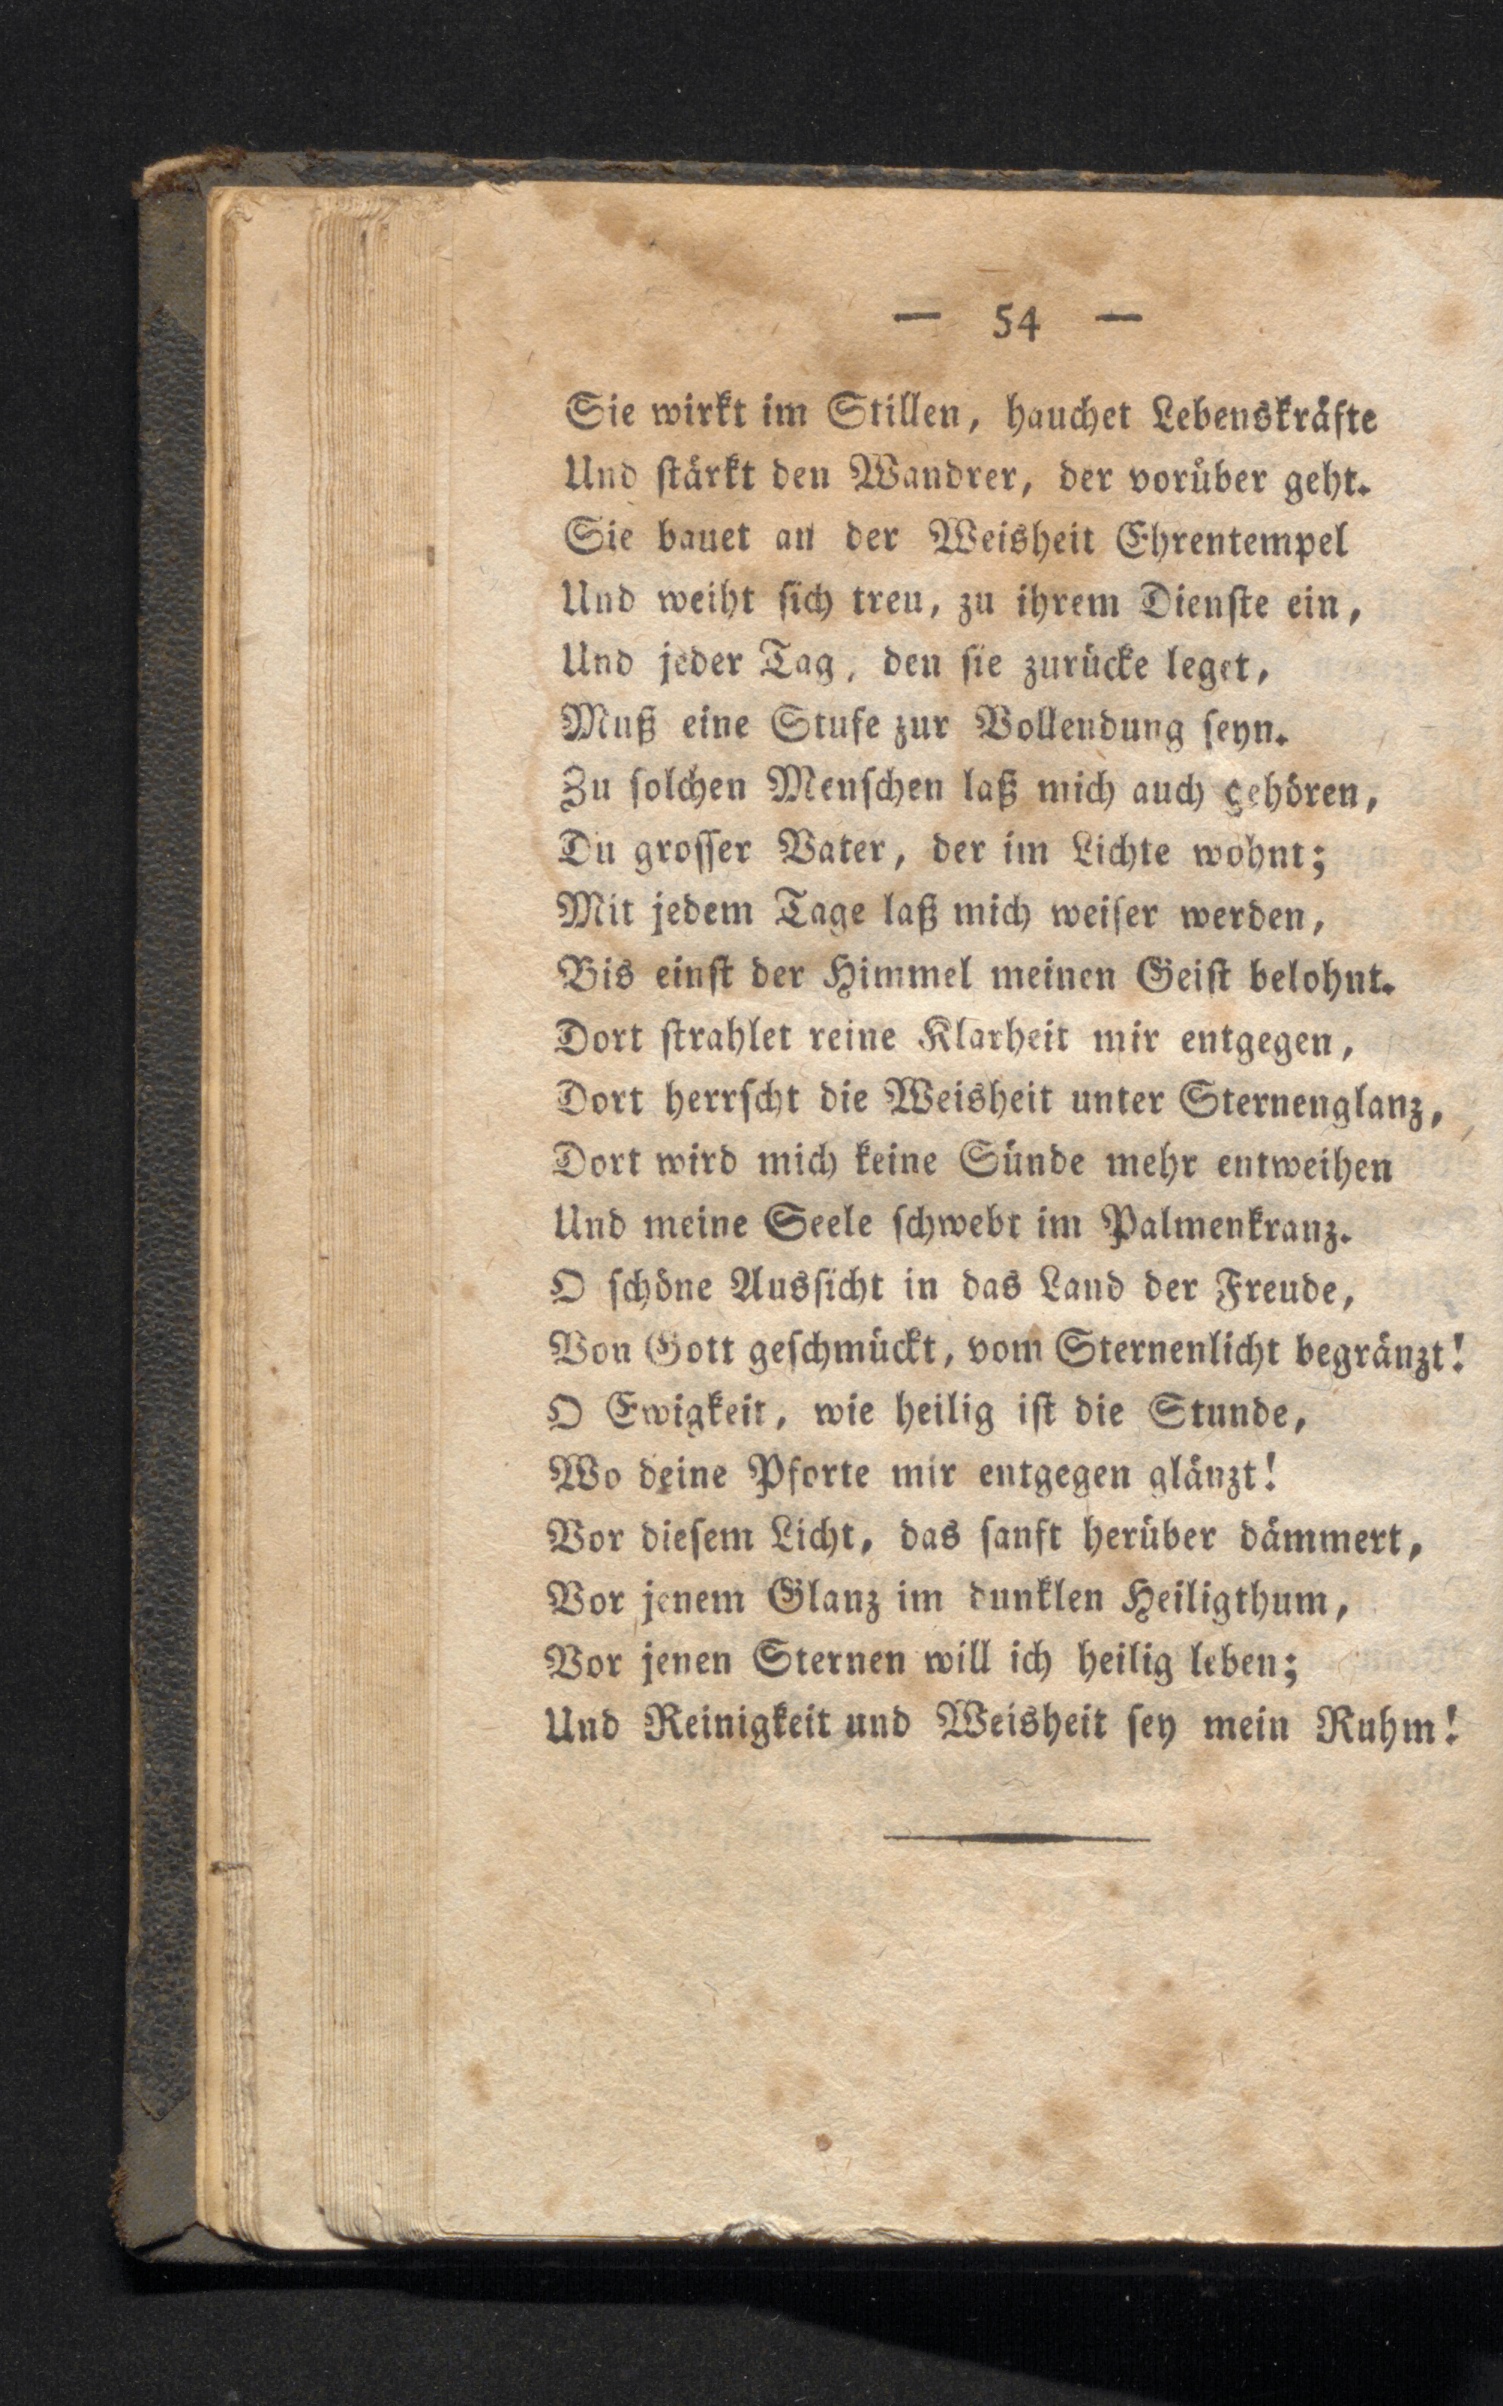 — 54 —
Sie wirkt im Stillen, hauchet Lebenskräfte
Und ſtärkt den Wandrer, der vorüber geht.
Sie bauet an der Weisheit Ehrentempel
Und weiht ſich treu, zu ihrem Dienſte ein,
Und jeder Tag, den ſie zurücke leget,
Muß eine Stufe zur Vollendung ſeyn.
Zu ſolchen Menſchen laß mich auch gehören,
Du groſſer Vater, der im Lichte wohnt;
Mit jedem Tage laß mich weiſer werden,
Bis einſt der Himmel meinen Geiſt belohnt.
Dort ſtrahlet reine Klarheit mir entgegen,
Dort herrſcht die Weisheit unter Sternenglanz,
Dort wird mich keine Sünde mehr entweihen
Und meine Seele ſchwebt im Palmenkranz.
O ſchöne Ausſicht in das Land der Freude,
Von Gott geſchmückt, vom Sternenlicht begränzt!
O Ewigkeit, wie heilig iſt die Stunde,
Wo deine Pforte mir entgegen glänzt!
Vor dieſem Licht, das ſanft herüber dämmert,
Vor jenem Glanz im dunklen Heiligthum,
Vor jenen Sternen will ich heilig leben;
Und Reinigkeit und Weisheit ſey mein Ruhm!